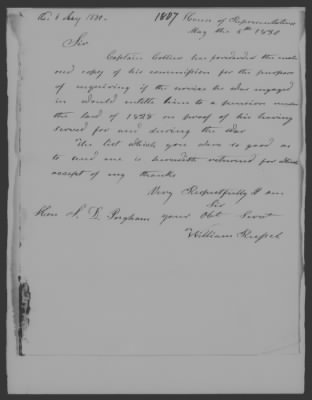 Rec. 6 May 1830. 1807 House of Representatives
May the 5th 1830
Sir
Captain Collier has forwarded the enclo
sed copy of his commission for the purpose
of enquiring if the service he was engaged
in would entitle him to a pension under
the law of 1828 on proof of his having
served for and during the war
The list which you were so good as
to send me is herewith returned for which
accept of my thanks
Very Respectfully I am
Sir
Hon your Obt Servt
William Russel